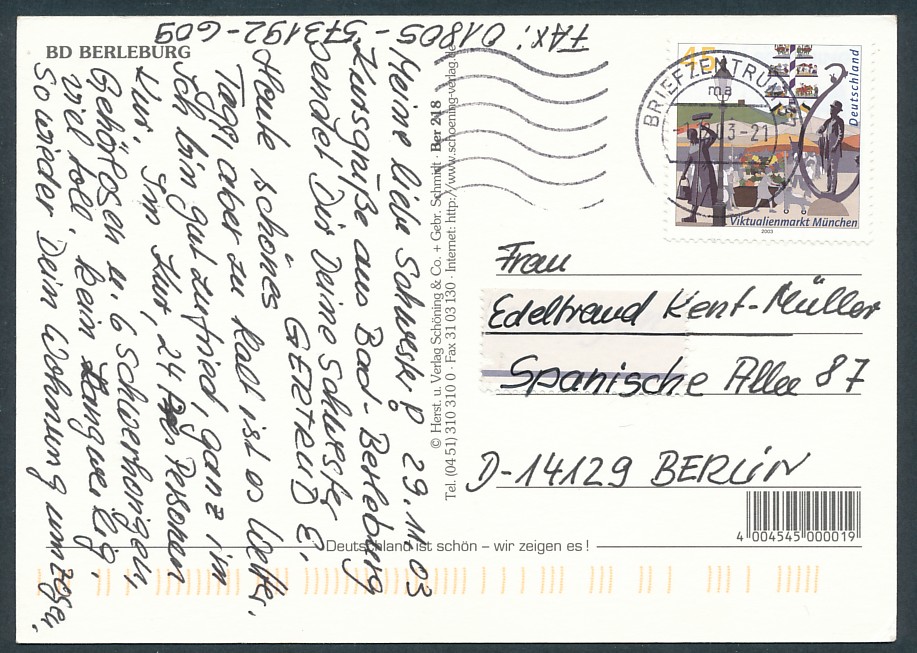 BD BERLEBURG
FAX: 01805-573192-609
Meine liebe Schwest. 29.11.03
Kursgrüße aus Bad-Berleburg
sendet Dir Deine Schwester
GERTRUD E.
Heute schönes Wetter,
Tag, aber zu kalt ist es
Ich bin gut zufried, ganz im
Kur. Im Kur, 24 Personen
Gehörlosen u. 6 Schwerhörigen,
viel toll. kein Langweilig,
So wieder Dein Wohnung umzogen,
© Herst. u. Verlag Schöning & Co. + Gebr. Schmidt · Ber 218
Tel. (04 51) 310 310 0 · Fax 31 03 130 · Internet: http://www.schoening-verlag.de
45
Deutschland
Viktualienmarkt München
2003
BRIEFZENTRUM
ma
03-21
Frau
Edeltraud Kent-Müller
Spanische Allee 87
D-14129 BERLIN
4 004545 000019
Deutschland ist schön – wir zeigen es !